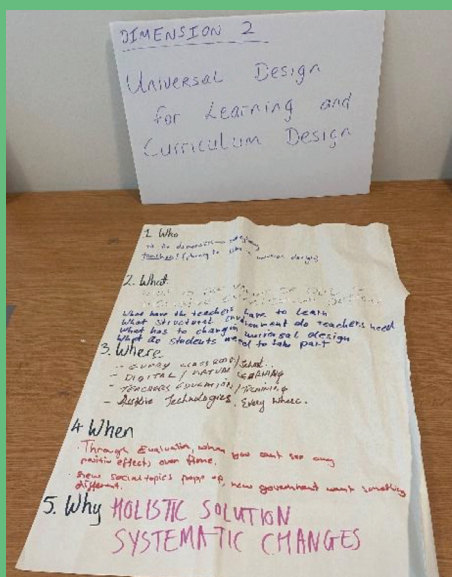 DIMENSION 2
Universal Design
for Learning and
Curriculum Design
1. Who
2. What
What have the teachers have to learn
What structural environment do teachers need
What has to change in universal design
What do students need to take part
3. Where
- EVERY CLASSROOM / School
- DIGITAL / LEARNING
- TEACHERS EDUCATION / TRAINING
- Technologies. Every where.
4 When
Through Evaluation, when you can't see any
positiv effects over time.
new social topics pop up, new government want something
different.
5. Why HOLISTIC SOLUTION
SYSTEMATIC CHANGES